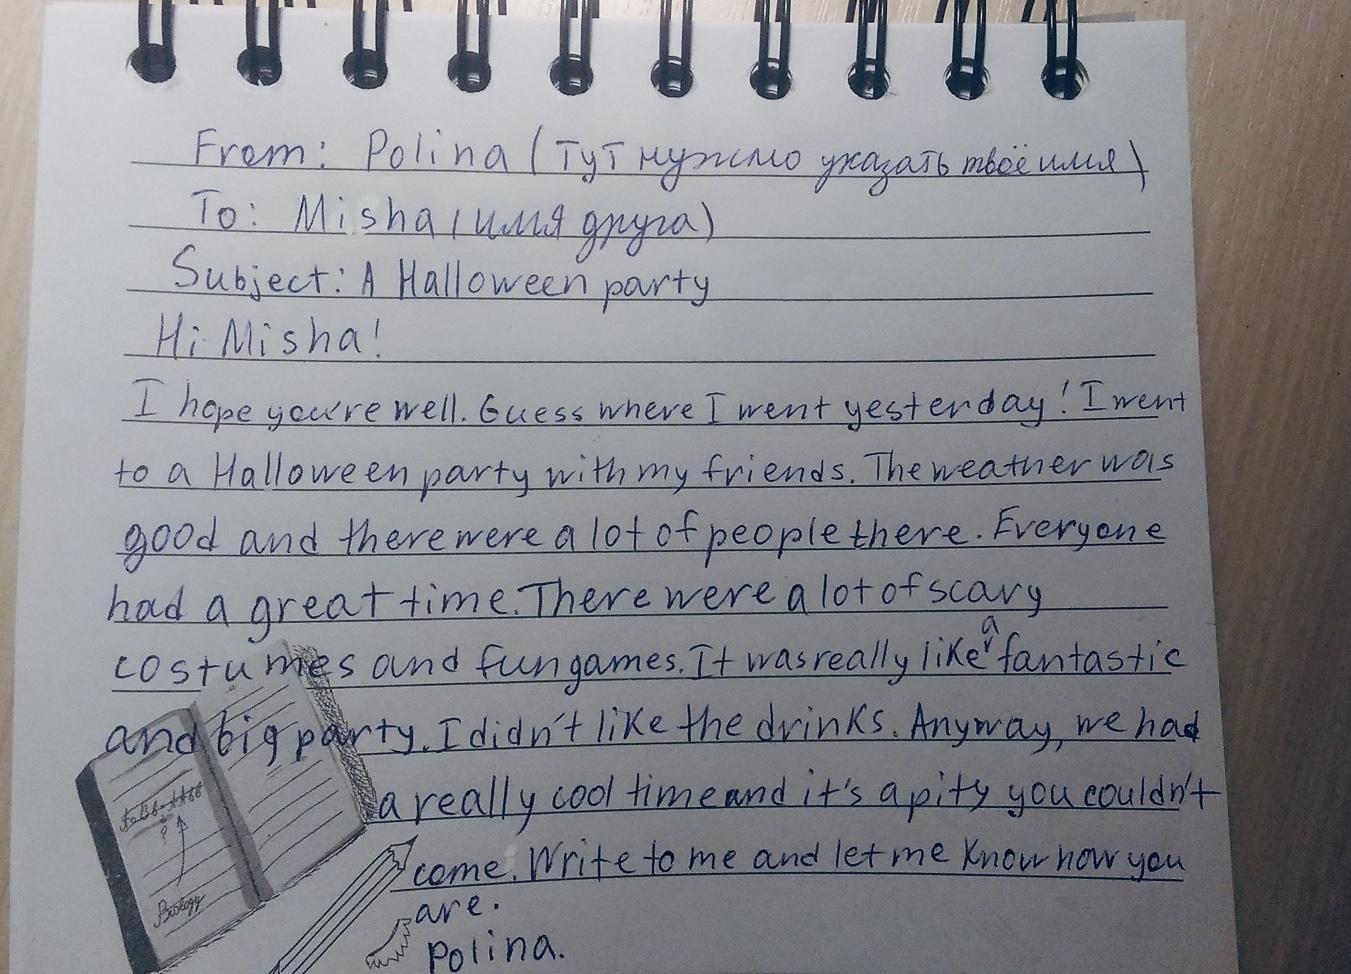 From: Polina (тут нужно указать твоё имя)
To: Misha (имя друга)
Subject: A Halloween party
Hi Misha!
I hope you're well. Guess where I went yesterday! I went
to a Halloween party with my friends. The weather was
good and there were a lot of people there. Everyone
had a great time. There were a lot of scary
costumes and fun games. It was really like a fantastic
and big party. I didn't like the drinks. Anyway, we had
a really cool time and it's a pity you couldn't
come. Write to me and let me know how you
are.
Polina.
?
Biology